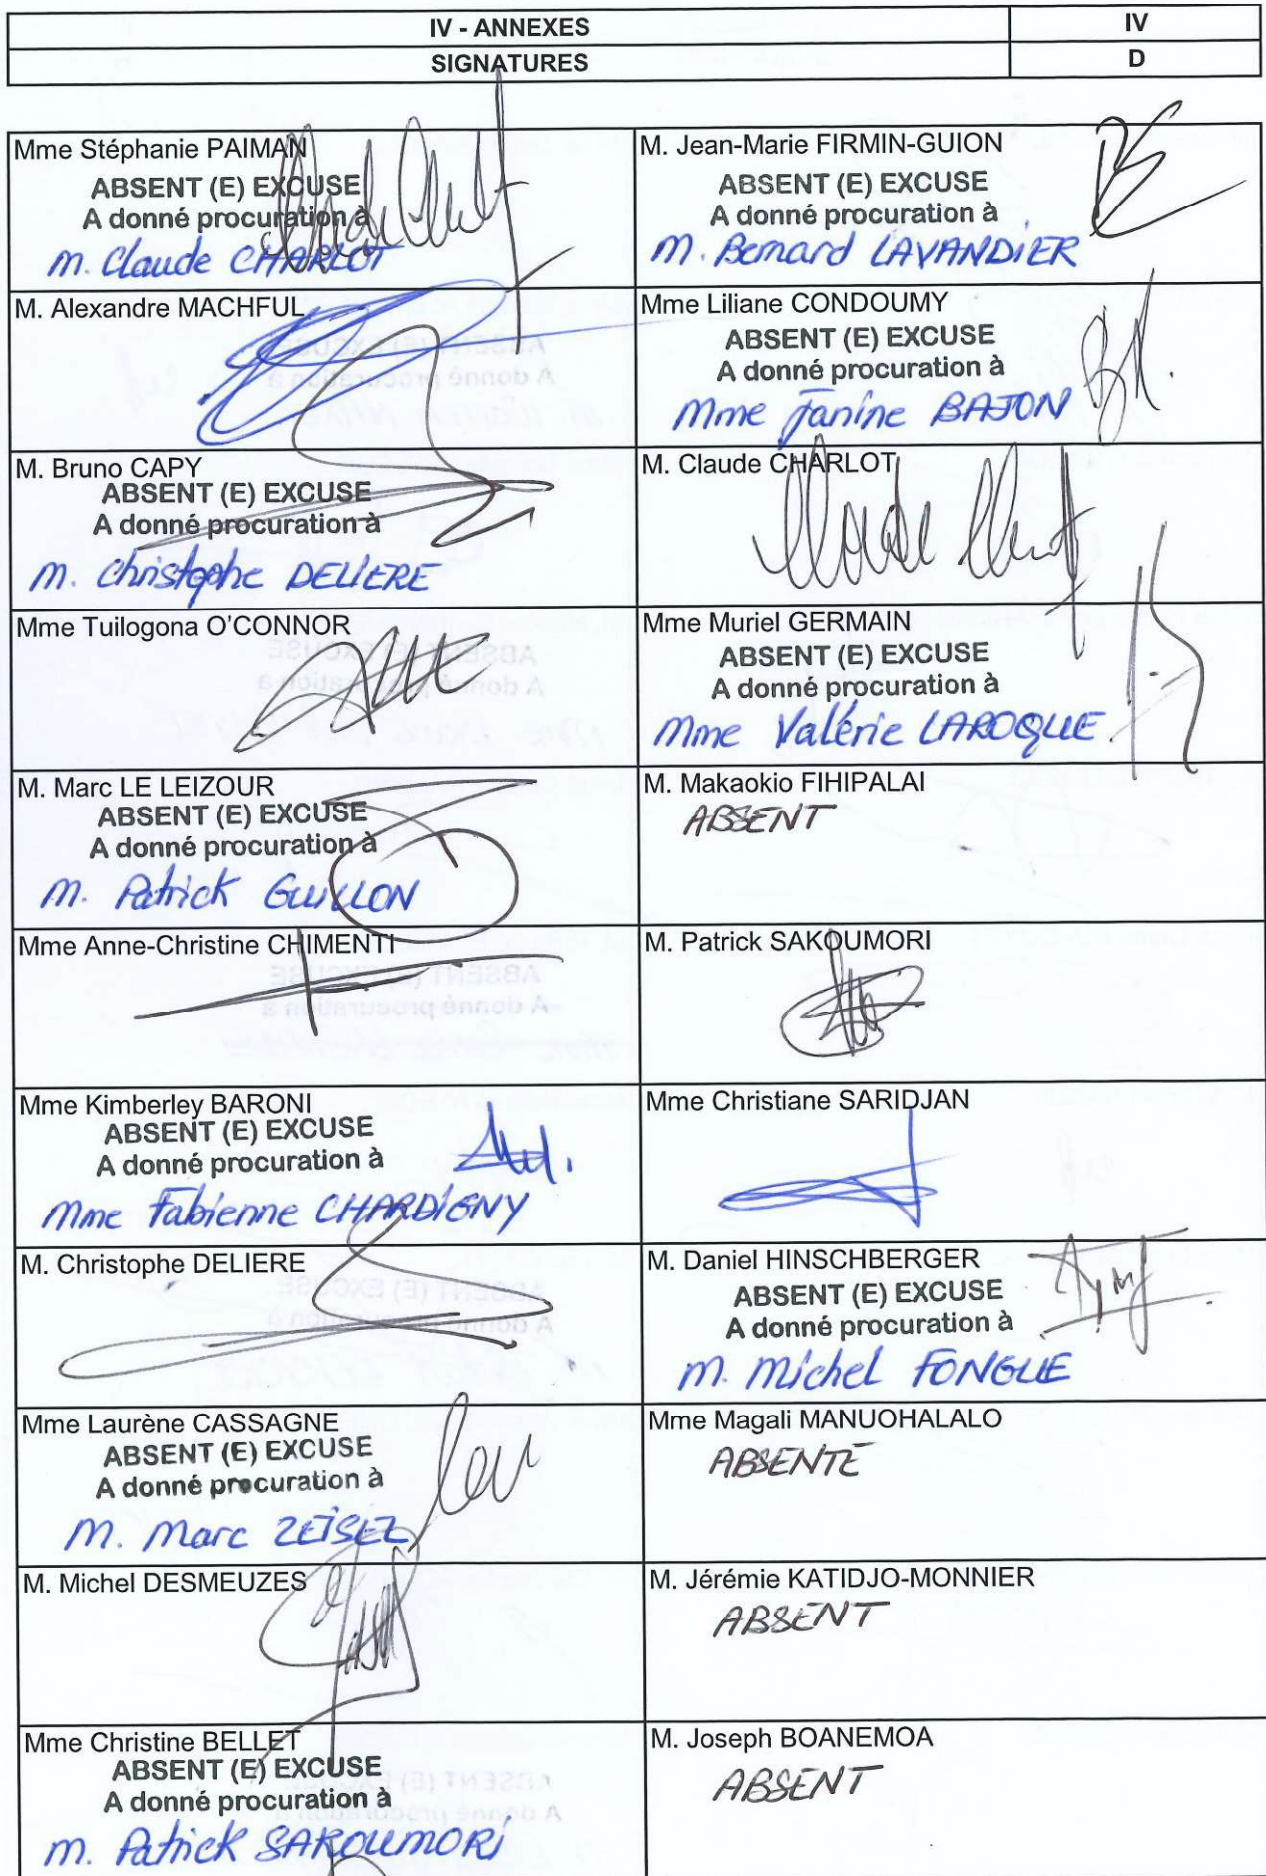 IV - ANNEXES
IV
SIGNATURES
D
Mme Stéphanie PAIMAN
ABSENT (E) EXCUSE
A donné procuration à
M. Claude CHARLOT
M. Jean-Marie FIRMIN-GUION
ABSENT (E) EXCUSE
A donné procuration à
M. Bernard LAVANDIER
M. Alexandre MACHFUL
Mme Liliane CONDOUMY
ABSENT (E) EXCUSE
A donné procuration à
Mme Janine BAJON
M. Bruno CAPY
ABSENT (E) EXCUSE
A donné procuration à
M. Christophe DELIERE
M. Claude CHARLOT
Mme Tuilogona O'CONNOR
Mme Muriel GERMAIN
ABSENT (E) EXCUSE
A donné procuration à
Mme Valérie LAROQUE
M. Marc LE LEIZOUR
ABSENT (E) EXCUSE
A donné procuration à
M. Patrick GUILLON
M. Makaokio FIHIPALAI
ABSENT
Mme Anne-Christine CHIMENTI
M. Patrick SAKOUMORI
Mme Kimberley BARONI
ABSENT (E) EXCUSE
A donné procuration à
Mme Fabienne CHARDIGNY
Mme Christiane SARIDJAN
M. Christophe DELIERE
M. Daniel HINSCHBERGER
ABSENT (E) EXCUSE
A donné procuration à
M. Michel FONGUE
Mme Laurène CASSAGNE
ABSENT (E) EXCUSE
A donné procuration à
M. Marc ZEISEZ
Mme Magali MANUOHALALO
ABSENTE
M. Michel DESMEUZES
M. Jérémie KATIDJO-MONNIER
ABSENT
Mme Christine BELLET
ABSENT (E) EXCUSE
A donné procuration à
M. Patrick SAKOUMORI
M. Joseph BOANEMOA
ABSENT